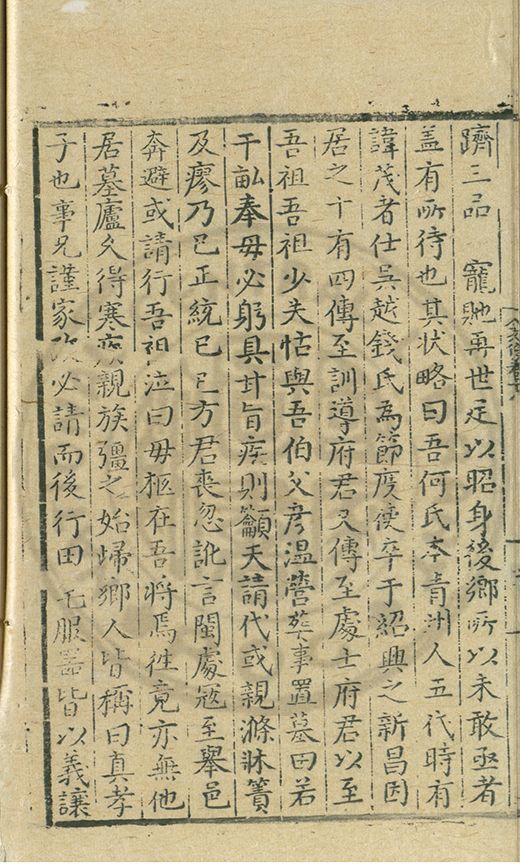 躋三品 寵貤再世足以昭身後鄉所以未敢亟者
盖有所待也其状略曰吾何氏本青州人五代時有
諱茂者仕吳越錢氏爲節度使卒于紹興之新昌因
居之十有四傳至訓導府君又傳至處士府君以至
吾祖吾祖少失怙與吾伯父彦温營葬事置墓田若
干畝奉母必躬具甘旨疾則籲天請代或親滌牀簀
及廖乃已正統己巳方君喪忽訛言閩處寇至舉邑
奔避或請行吾祖泣曰母柩在吾將焉徃竟亦無他
居墓廬久得寒疾親族彊之始歸鄉人皆稱曰真孝
子也事兄謹家 必請而後行田宅服器皆以義讓